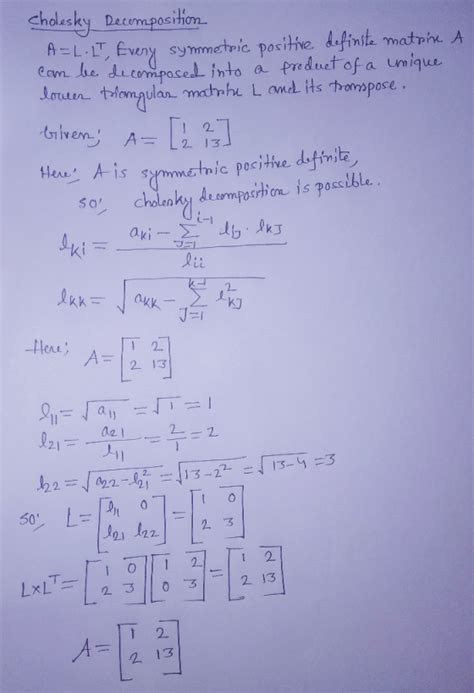 Cholesky Decomposition
A = L·Lᵀ, Every symmetric positive definite matrix A
can be decomposed into a product of a unique
lower triangular matrix L and its transpose.
Given; A = [1 2; 2 13]
Here: A is symmetric positive definite,
so: cholesky decomposition is possible.
l_ki = (a_ki − Σ_{J=1}^{i−1} l_ij · l_kJ) / l_ii
l_kk = √(a_kk − Σ_{J=1}^{k−1} l²_kJ)
Here; A = [1 2; 2 13]
l₁₁ = √a₁₁ = √1 = 1
l₂₁ = a₂₁/l₁₁ = 2/1 = 2
l₂₂ = √(a₂₂ − l₂₁²) = √(13 − 2²) = √(13 − 4) = 3
so: L = [l₁₁ 0; l₂₁ l₂₂] = [1 0; 2 3]
L×Lᵀ = [1 0; 2 3] [1 2; 0 3] = [1 2; 2 13]
A = [1 2; 2 13]